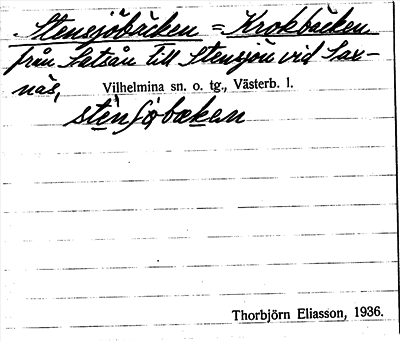 Stensjöbäcken = Krokbäcken
från Satsån till Stensjön vid Sax-
näs, Vilhelmina sn. o. tg., Västerb. l.
Thorbjörn Eliasson, 1936.